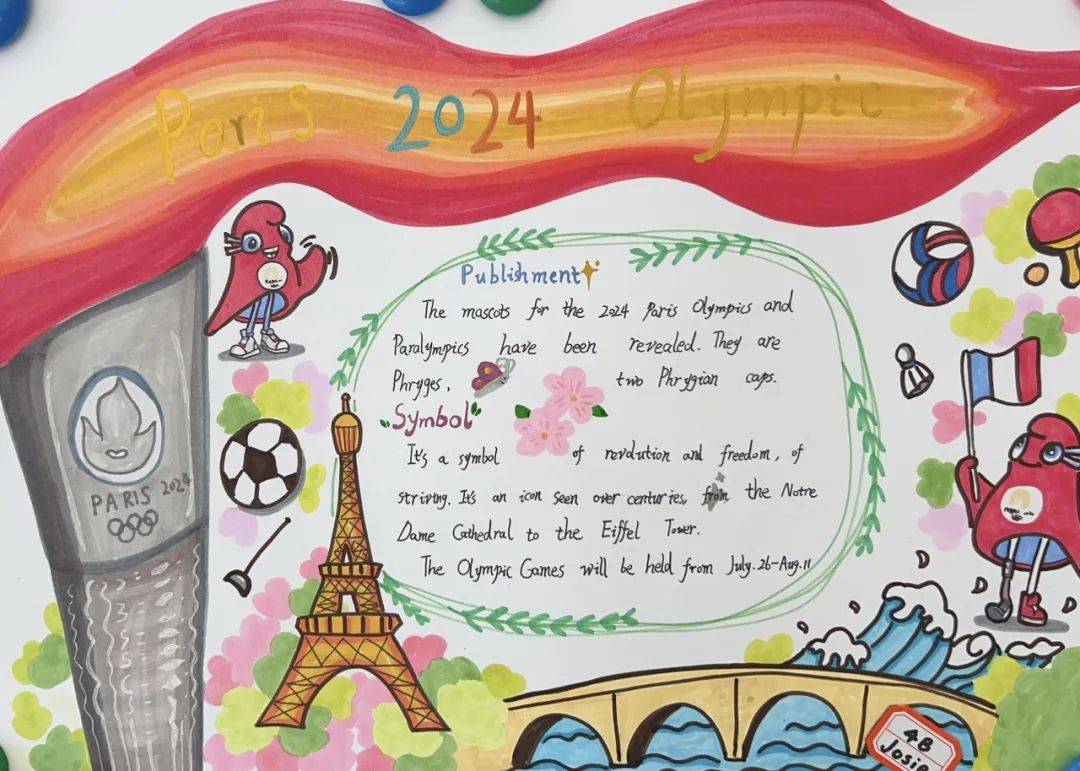 Paris 2024 Olympic
Publishment
The mascots for the 2024 Paris Olympics and
Paralympics have been revealed. They are
Phryges, two Phrygian caps.
Symbol
It's a symbol of revolution and freedom, of
striving. It's an icon seen over centuries, from the Notre
Dame Cathedral to the Eiffel Tower.
The Olympic Games will be held from July.26-Aug.11
PARIS 2024
4B
Josie